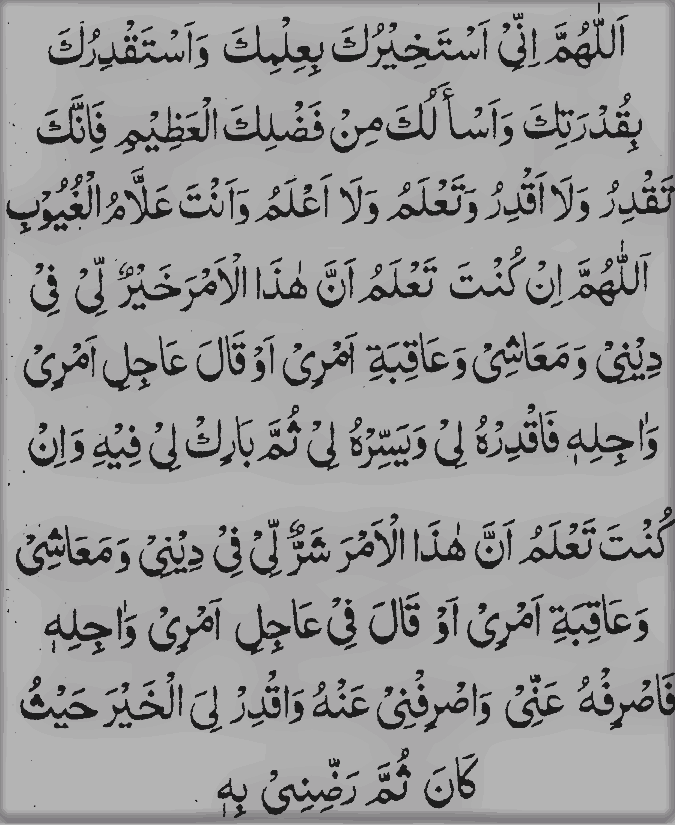 اَللّٰهُمَّ اِنِّیْ اَسْتَخِیْرُكَ بِعِلْمِكَ وَاَسْتَقْدِرُكَ
بِقُدْرَتِكَ وَاَسْأَلُكَ مِنْ فَضْلِكَ الْعَظِیْمِ فَاِنَّكَ
تَقْدِرُ وَلَا اَقْدِرُ وَتَعْلَمُ وَلَا اَعْلَمُ وَاَنْتَ عَلَّامُ الْغُیُوْبِ
اَللّٰهُمَّ اِنْ كُنْتَ تَعْلَمُ اَنَّ هٰذَا الْاَمْرَ خَیْرٌ لِّیْ فِیْ
دِیْنِیْ وَمَعَاشِیْ وَعَاقِبَةِ اَمْرِیْ اَوْ قَالَ عَاجِلِ اَمْرِیْ
وَاٰجِلِهٖ فَاقْدِرْهُ لِیْ وَیَسِّرْهُ لِیْ ثُمَّ بَارِكْ لِیْ فِیْهِ وَاِنْ
كُنْتَ تَعْلَمُ اَنَّ هٰذَا الْاَمْرَ شَرٌّ لِّیْ فِیْ دِیْنِیْ وَمَعَاشِیْ
وَعَاقِبَةِ اَمْرِیْ اَوْ قَالَ فِیْ عَاجِلِ اَمْرِیْ وَاٰجِلِهٖ
فَاصْرِفْهُ عَنِّیْ وَاصْرِفْنِیْ عَنْهُ وَاقْدِرْ لِیَ الْخَیْرَ حَیْثُ
كَانَ ثُمَّ رَضِّنِیْ بِهٖ